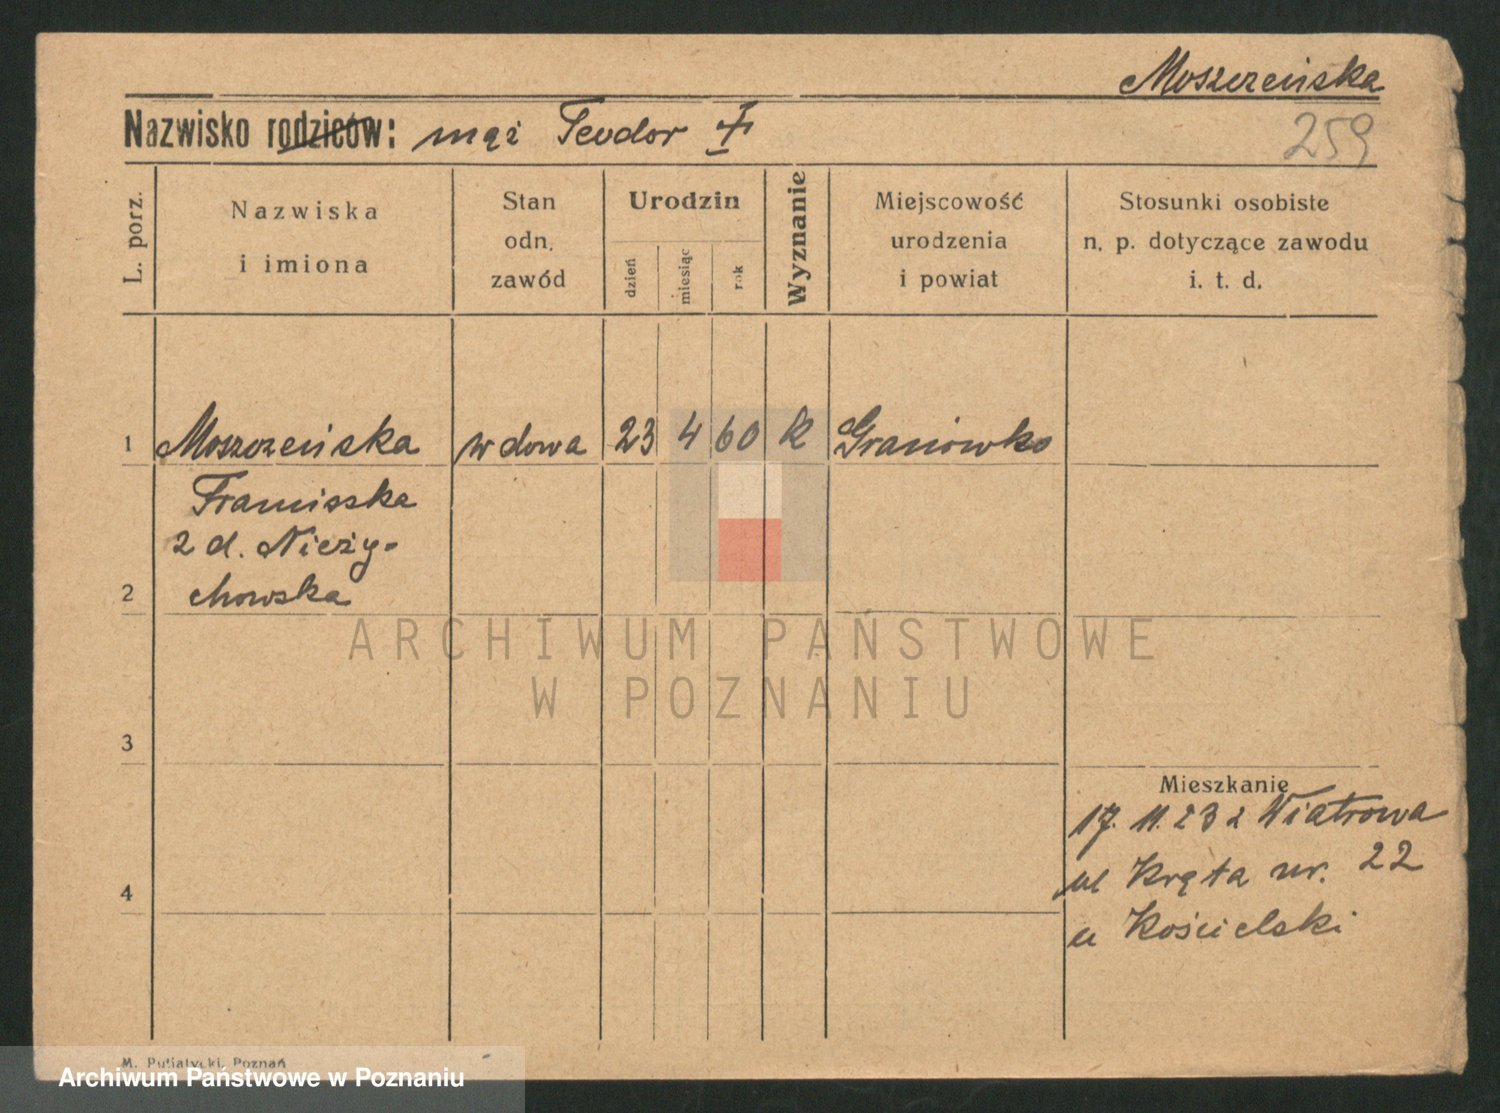 Moszczeńska
Nazwisko rodziców: mąż Teodor †
259
L. porz.
Nazwiska
i imiona
Stan
odn.
zawód
Urodzin
dzień
miesiąc
rok
Wyznanie
Miejscowość
urodzenia
i powiat
Stosunki osobiste
n. p. dotyczące zawodu
i. t. d.
1 Moszczeńska wdowa 23 4 60 k Granówko
Franciszka
2 d. Nieży-
2 chowska
ARCHIWUM PAŃSTWOWE
W POZNANIU
3
Mieszkanie
17. 11. 23 z Wiatrowa
ul Kręta nr. 22
u Kościelski
4
M. Putiatycki, Poznań
Archiwum Państwowe w Poznaniu